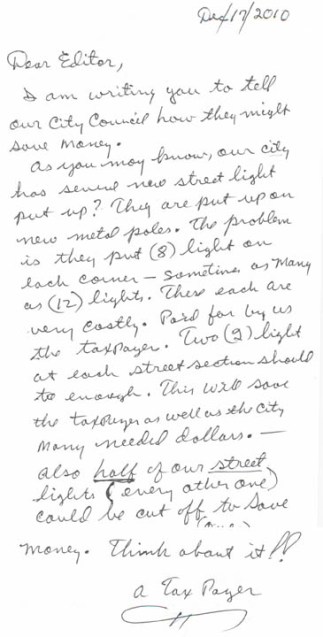 Dec/17/2010
Dear Editor,
I am writing you to tell
our City Council how they might
save money.
As you may know, our city
has several new street light
put up? They are put up on
new metal poles. The problem
is they put (8) light on
each corner — sometimes as many
as (12) lights. These each are
very costly. Paid for by us
the taxpayer. Two (2) light
at each street section should
be enough. This will save
the taxpayer as well as the City
many needed dollars. —
Also half of our street
lights (every other one)
could be cut off to save
money. Think about it!!
A Tax Payer